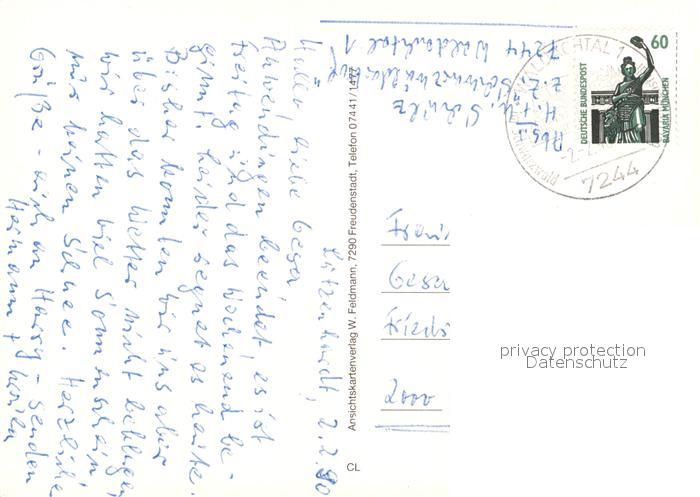 Lützenhardt, 2.2.90
Hallo liebe Geser
Anwendungen beendet, es ist
Freitag und das Wochenend be-
ginnt. Leider regnet es heute.
Bisher konnten wir uns aber
über das Wetter nicht beklagen,
wir hatten viel Sonnenschein
nur keinen Schnee. Herzliche
Grüße - auch an Harry - senden
Hermann +
Abs.:
H. + Schulz
z.Z. Schwarzwald
7244 Waldachtal 1
Ansichtskartenverlag W. Feldmann, 7290 Freudenstadt, Telefon 07441/1477
CL
60
DEUTSCHE BUNDESPOST
BAVARIA MÜNCHEN
WALDACHTAL 1
7244
Geser
Friedr
2000
privacy protection
Datenschutz